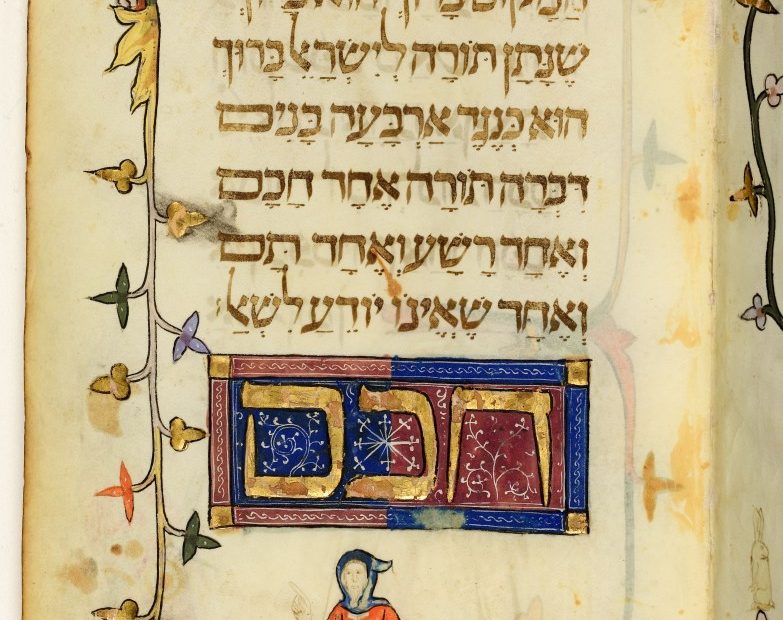 הַמָּקוֹם בָּרוּךְ הוּא בָּרוּךְ
שֶׁנָּתַן תּוֹרָה לְיִשְׂרָאֵל בָּרוּךְ
הוּא כְּנֶגֶד אַרְבָּעָה בָּנִים
דִּבְּרָה תּוֹרָה אֶחָד חָכָם
וְאֶחָד רָשָׁע וְאֶחָד תָּם
וְאֶחָד שֶׁאֵינוֹ יוֹדֵעַ לִשְׁאַל׃
חכם